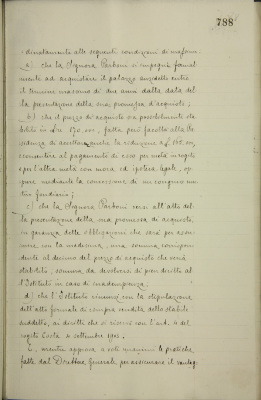 788
dinatamente alle seguenti condizioni di massima:
a) che la Signora Pacboni si impegni formal
mente ad acquistare il palazzo suddetto entro
il termine massimo di due anni dalla data del
la presentazione della sua promessa d'acquisto;
b) che il prezzo d'acquisto sia possibilmente sta
bilito in Lire 170,000, fatta però facoltà alla Pre
sidenza di accettare anche la riduzione a L. 160.000,
consentire al pagamento di esso per metà in rogito
e per l'altra metà con mora, ed ipoteca legale, op
pure mediante la concessione di un congruo mu
tuo fondiario;
c) che la Signora Pacboni versi all'atto del
la presentazione della sua promessa di acquisto,
in garanzia delle obbligazioni che sarà per assu
mere con la medesima, una somma corrispon
dente al decimo del prezzo di acquisto che verrà
stabilito, somma da devolversi di pien diritto al
l'Istituto in caso di inadempienza;
d) che l'Istituto rinunzi con la stipulazione
dell'atto formale di compra vendita dello stabile
suddetto, ai diritti che si riservò con l'art. 4 del
rogito 4 settembre 1901,
e, mentre approva a voti unanimi le pratiche
fatte dal Direttore Generale per assicurare il vantag-